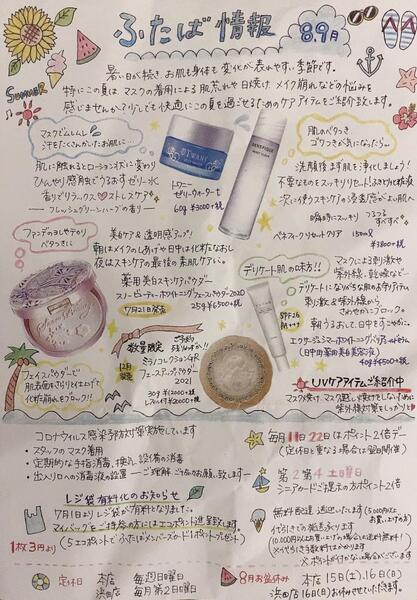 ふたば情報 8.9月
SUMMER
暑い日が続き、お肌も身体も変化が表れやすい季節です。
特にこの夏は マスクの着用による肌荒れや日焼け メイク崩れなどの悩みを
感じませんか?少しでも快適にこの夏を過ごせるためのケアアイテムをご紹介致します。
マスクでムレムレ
汗をたくさんかいたお肌に…
肌に触れるとローション状に変わり
ひんやり感触でうるおすゼリー水
香りでリラックス♡ストレスケア
― フレッシュグリーンハーブの香り ―
TWANY
トワニー
ゼリーウォーターt
60g ¥3000+税
BENEFIQUE
肌のべたつき
ゴワつきが気になったら…
洗顔後まず肌を浄化しましょう!
不要なものをスッキリリセットふきとり化粧液
次に使うスキンケアの浸透感がよい肌へ
瞬時にスッキリ つるつる すべすべ
ベネフィークリセットクリア 150ml
¥3800+税
ファンデのヨレやテカリ
ベタつきに
美白ケア&透明感アップ!
朝はメイクのしあげや日中は化粧なおし
夜はスキンケアの最後の素肌ケアに。
薬用美白スキンケアパウダー
スノービューティーホワイトニングフェースパウダー2020
25g ¥6500+税
7月21日発売
フェイスパウダーで
肌表面をさらりと仕上げて
化粧崩れをブロック!!
数量限定
ご予約
12月
ミラノコレクションGR
フェースアップパウダー
2021
30g ¥12000+税
デリケート肌の味方!!
マスクによる刺激や
紫外線・乾燥など…
デリケートになりがちな肌のお手入れに
刺激&紫外線から
さわやかにブロック。
朝うるおして、日中をすこやかに
SPF26
PA+++
(日中用薬用美白美容液)
40g ¥4500+税
UVケアアイテムご紹介中
コロナウィルス感染予防対策実施しています
・スタッフのマスク着用
・定期的な手指消毒、換気、設備の消毒
・出入り口への消毒液の設置 ― ご理解・ご協力お願い致します ―
毎月11日22日はポイント2倍デー
(定休日と重なる場合は翌日開催)
第2第4土曜日
シニアカードご提示の方ポイント2倍
レジ袋有料化のお知らせ
7月1日よりレジ袋が有料となりました。
マイバッグをご持参の方にはエコポイント進呈致します
1枚3円より
(5エコポイントでふたばメンバーズカード1ポイントプレゼント)
無料配達・発送致しております
(5,000円以上お買上げの方)
代引きでの発送承ります
定休日 本店 毎週日曜日
浜田店 毎月第2日曜日
8月お盆休み 本店15日(土).16日(日)
浜田店16日(日)お休みさせていただきます。